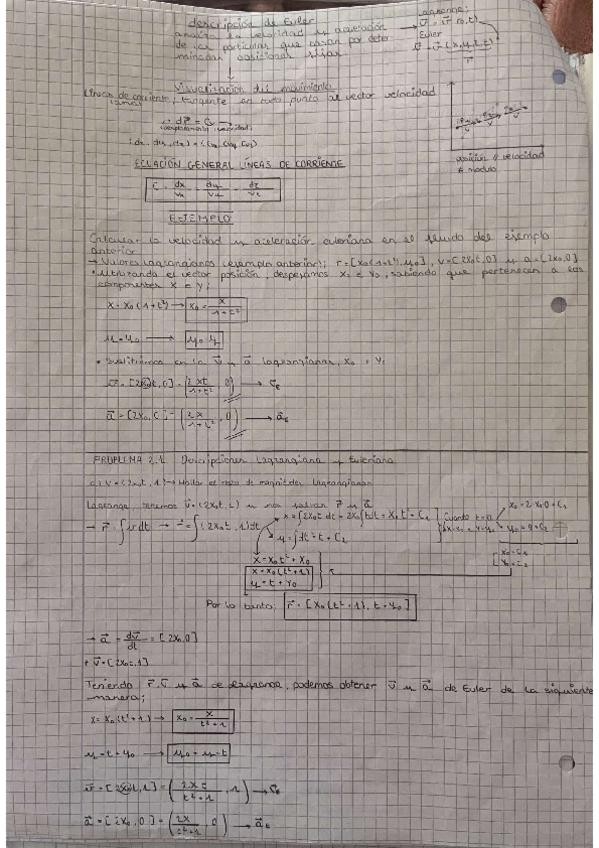 descripción de Euler
analiza la velocidad y aceleración
de las partículas que pasan por deter
minadas posiciones fijas
Lagrange:
Euler
Visualización del movimiento
Líneas de corriente, tangente en todo punto al vector velocidad
posición ≠ velocidad
≠ modulo
ECUACIÓN GENERAL LÍNEAS DE CORRIENTE
C = dx/vx = dy/vy = dz/vz
EJEMPLO
Calcular la velocidad y aceleración euleriana en el fluido del ejemplo
anterior
→ Valores lagrangianos (ejemplo anterior): r = [x0(1+t²), y0], v = [2x0t, 0] y a = [2x0, 0]
• Utilizando el vector posición, despejamos x0 e y0, sabiendo que pertenecen a las
componentes x e y;
x = x0(1+t²) → x0 = x/(1+t²)
y = y0 → y0 = y
• Sustituimos en la v⃗ y a⃗ lagrangianas, x0
v⃗ = [2x0t, 0] = (2xt/(1+t²), 0) → v⃗E
a⃗ = [2x0, 0] = (2x/(1+t²), 0) → a⃗E
PROBLEMA 2.1 Descripciones Lagrangiana y Euleriana
v = (2x0t, 1) → Hallar el resto de magnitudes lagrangianas
Lagrange tenemos v⃗ = (2x0t, 1) y nos faltan r⃗ y a⃗
→ r⃗ = ∫v dt → r⃗ = ∫(2x0t, 1)dt
x = ∫2x0t dt = 2x0∫t dt = x0t² + C1
y = ∫dt = t + C2
Cuando t=0
x0 = 2·x0·0 + C1
y0 = 0 + C2
x0 = C1
y0 = C2
x = x0t² + x0
x = x0(t²+1)
y = t + y0
Por lo tanto: r⃗ = [x0(t²+1), t+y0]
→ a⃗ = dv⃗/dt = [2x0, 0]
v⃗ = [2x0t, 1]
Teniendo r⃗, v⃗ y a⃗ de Lagrange, podemos obtener v⃗ y a⃗ de Euler de la siguiente
manera;
x = x0(t²+1) → x0 = x/(t²+1)
y = t + y0 → y0 = y - t
v⃗ = [2x0t, 1] = (2xt/(t²+1), 1) → v⃗E
a⃗ = [2x0, 0] = (2x/(t²+1), 0) → a⃗E